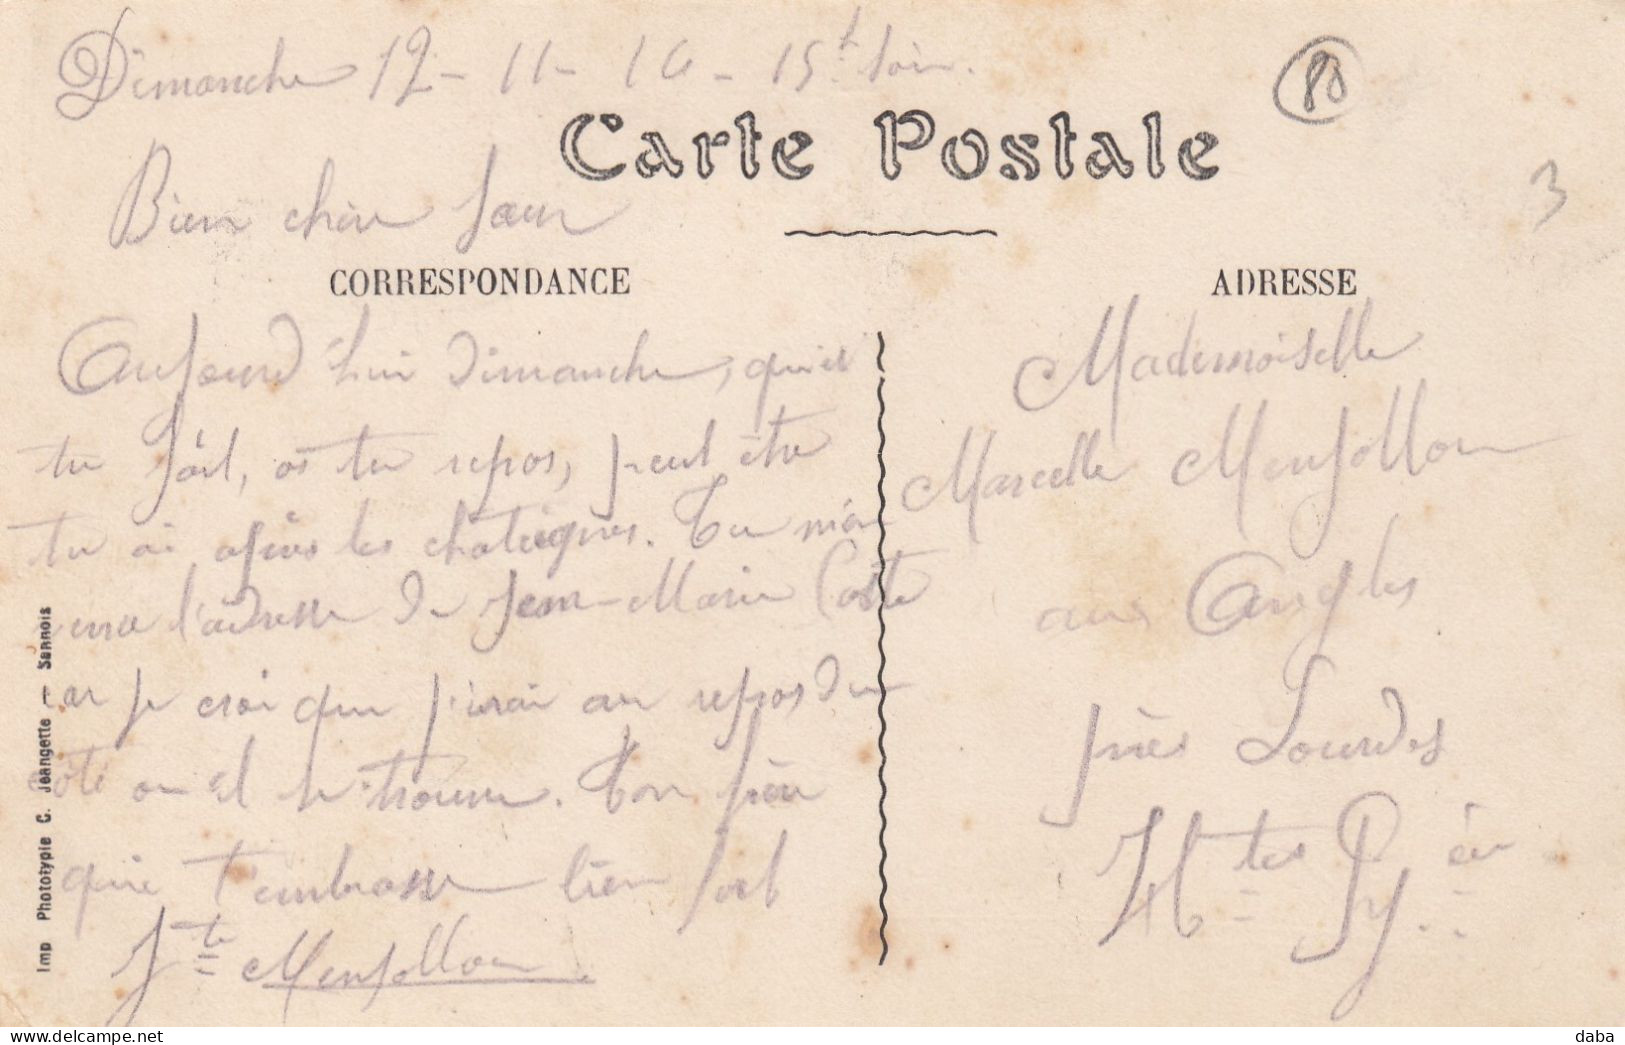 Dimanche 12 - 11 - 16 - 15h soir.
80
Carte Postale
3
Bien chère Sœur
CORRESPONDANCE
Aujourd'hui Dimanche, qu'es
tu fait, as tu repos, peut être
tu ai après les chateignes. Tu m'en
verra l'adresse de Jean-Marie Coste
car je croi que j'irai au repos du
côté ou il se trouve. Ton frère
qui t'embrasse bien fort
Menjollou
ADRESSE
Mademoiselle
Marcelle Menjollou
aux Angles
près Lourdes
Htes Py.
Imp Phototypie C. Jeangette — Sannois
delcampe.net
daba